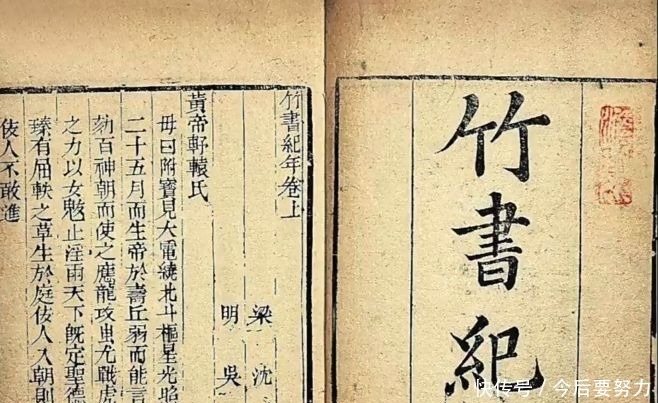 竹書紀
竹書紀年卷上
梁 沈
明 吳
黃帝軒轅氏
母曰附寶見大電繞北斗樞星光照
二十五月而生帝於壽丘弱而能言
劾百神朝而使之應龍攻蚩尤戰虎
之力以女魃止淫雨天下既定聖德
臻有屈軼之草生於庭佞人入朝則
佞人不敢進
快传号 / 今后要努力